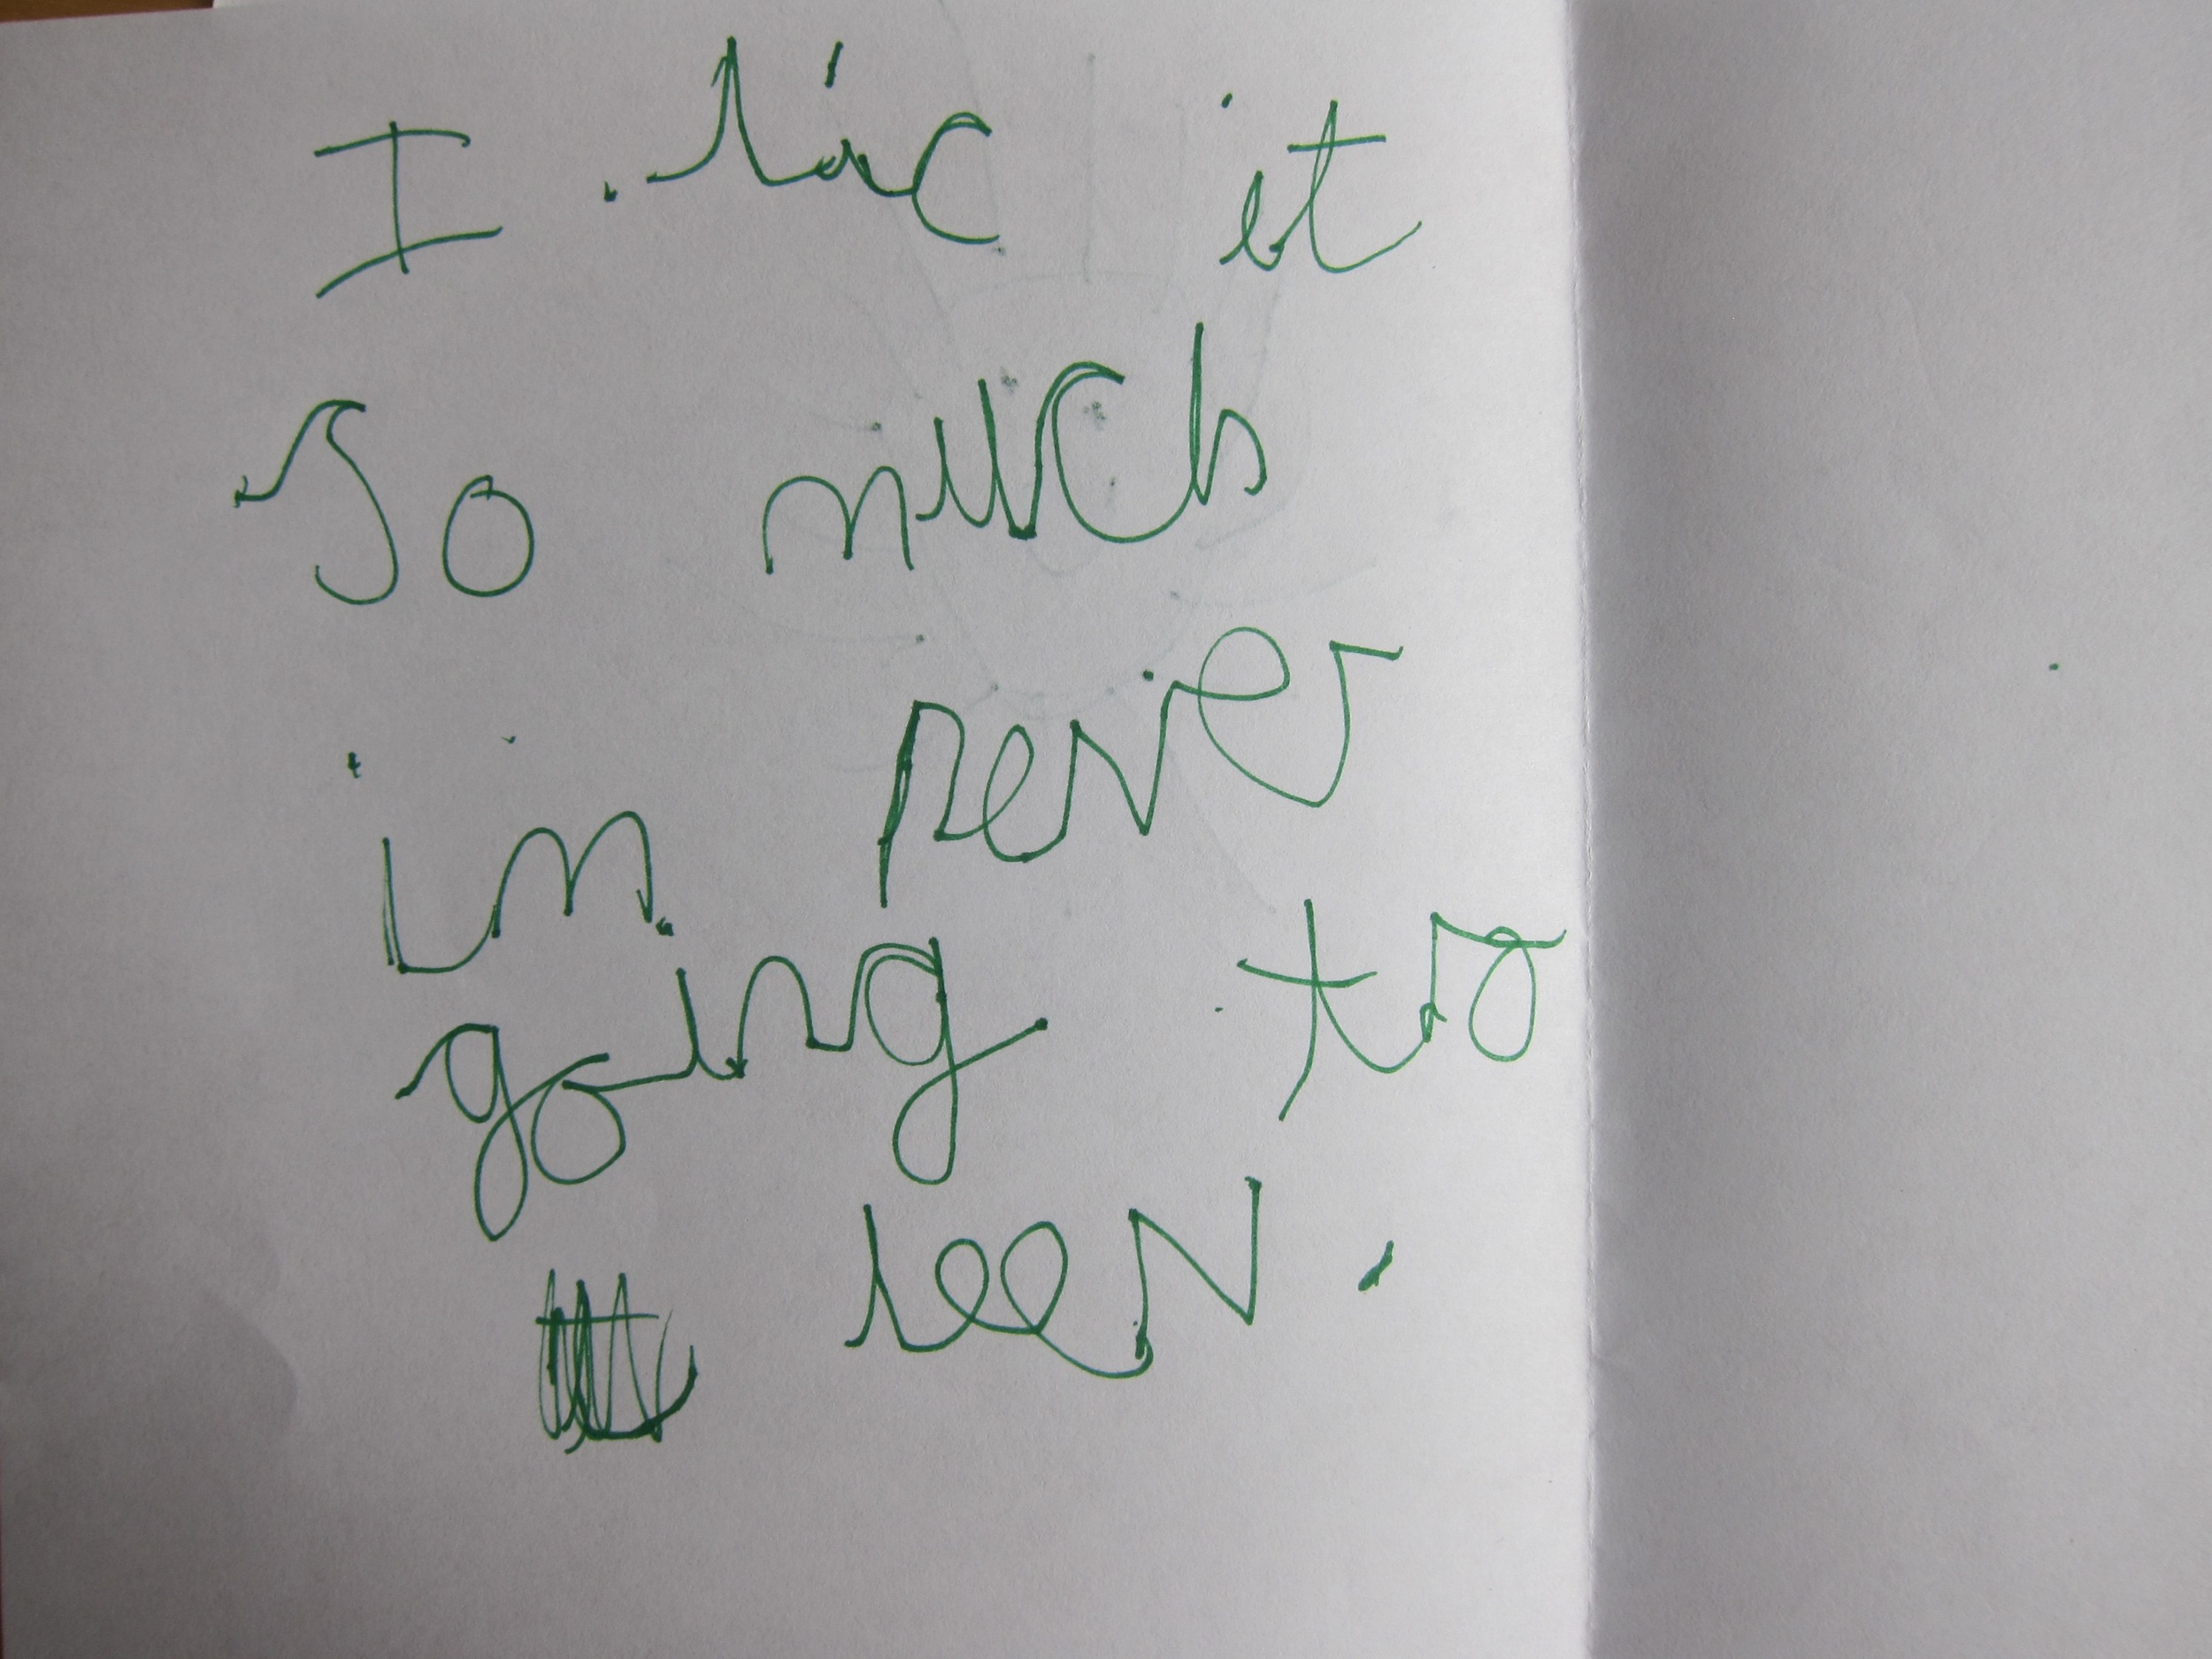 I lic it
So much
im never
going to
leev.